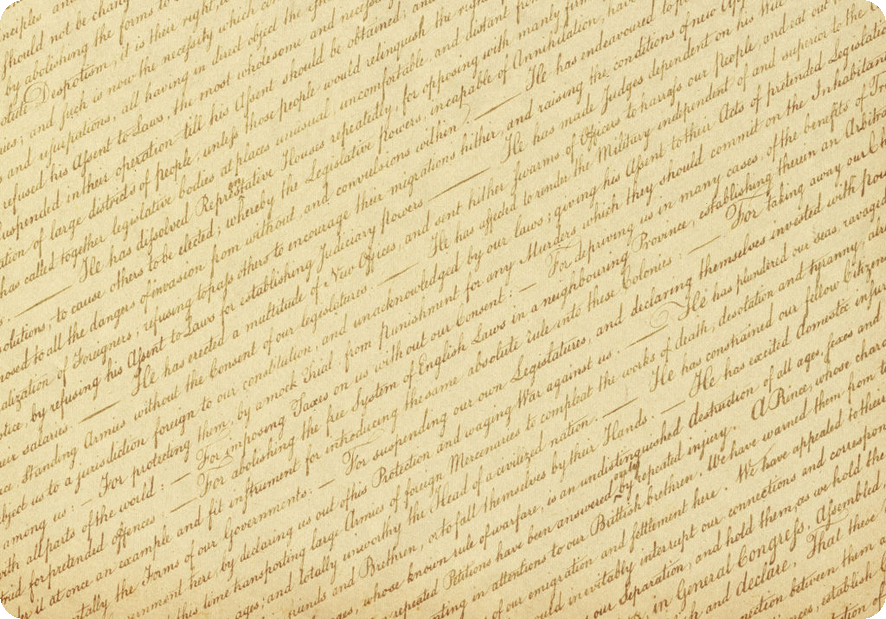 nciples and
should not be chang
by abolishing the forms to
olute Despotism, it is their right,
nies; and such is now the necessity which co
and usurpations, all having in direct object the est
refused his Assent to Laws, the most wholesome and necessary
suspended in their operation till his Assent should be obtained; and
tion of large districts of people, unless those people would relinquish the right
has called together legislative bodies at places unusual, uncomfortable, and distant from
— He has dissolved Representative Houses repeatedly, for opposing with manly firm
olutions, to cause others to be elected; whereby the Legislative powers, incapable of Annihilation, have
posed to all the dangers of invasion from without, and convulsions within. — He has endeavoured to p
alization of Foreigners; refusing to pass others to encourage their migrations hither, and raising the conditions of new App
stice, by refusing his Assent to Laws for establishing Judiciary powers — He has made Judges dependent on his Will
eir salaries. — He has erected a multitude of New Offices, and sent hither swarms of Officers to harrass our people, and eat out
ce, Standing Armies without the Consent of our legislatures. — He has affected to render the Military independent of and superior to the
bject us to a jurisdiction foreign to our constitution, and unacknowledged by our laws; giving his Assent to their Acts of pretended Legislatio
among us: — For protecting them, by a mock Trial, from punishment for any Murders which they should commit on the Inhabitan
with all parts of the world: — For imposing Taxes on us without our Consent: — For depriving us in many cases, of the benefits of Tr
ried for pretended offences — For abolishing the free System of English Laws in a neighbouring Province, establishing therein an Arbitra
r it at once an example and fit instrument for introducing the same absolute rule into these Colonies: — For taking away our Ch
ntally the Forms of our Governments: — For suspending our own Legislatures, and declaring themselves invested with pow
vernment here, by declaring us out of his Protection and waging War against us. — He has plundered our seas, ravaged
this time transporting large Armies of foreign Mercenaries to compleat the works of death, desolation and tyranny, alre
ages, and totally unworthy the Head of a civilized nation. — He has constrained our fellow Citizen
riends and Brethren, or to fall themselves by their Hands. — He has excited domestic insur
ages, whose known rule of warfare, is an undistinguished destruction of all ages, sexes and
repeated Petitions have been answered only by repeated injury. A Prince, whose charac
nting in attentions to our Brittish brethren. We have warned them from t
of our emigration and settlement here. We have appealed to their
ould inevitably interrupt our connections and correspon
our Separation, and hold them, as we hold the
in General Congress, Assembled
and declare, That these
nection between them a
nces, establish
tion of